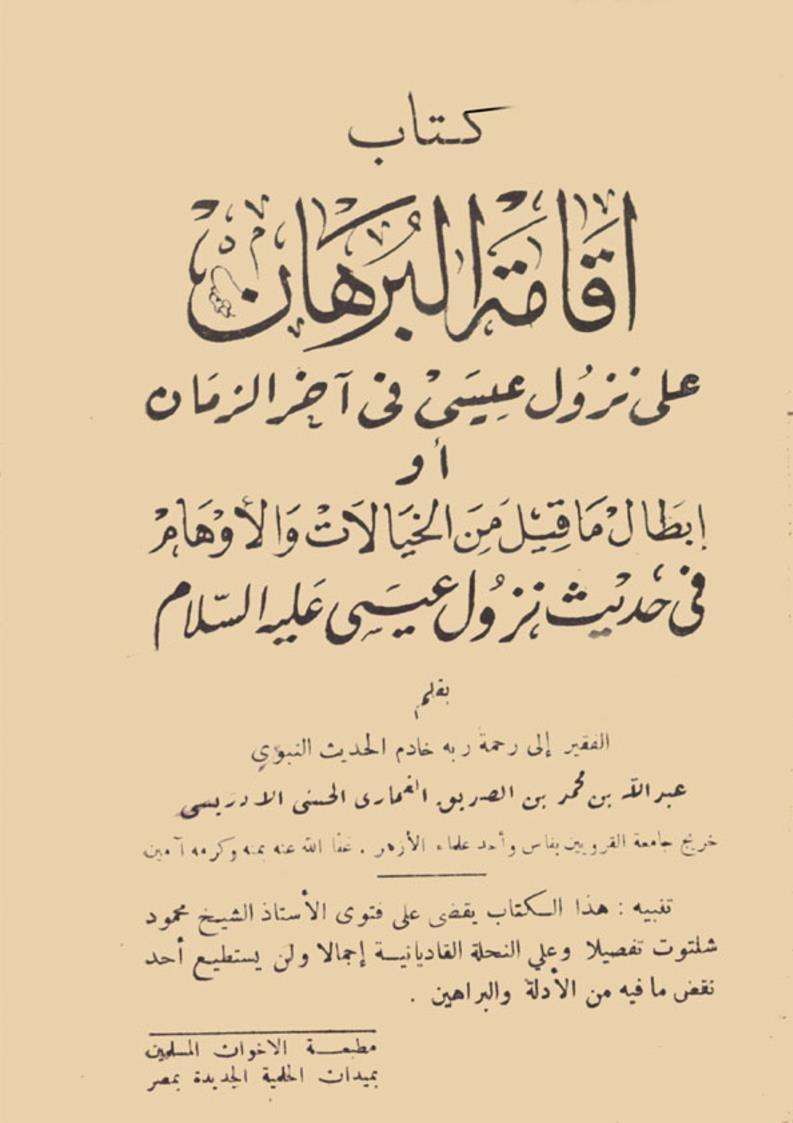 كتاب
اقامة البُرهَان
على نزُول عِيسَى فى آخر الزمَان
أو
إبطَال مَاقِيْلَ مِنَ الخيَالَات وَالأوْهَام
فى حَديث نزُول عيسَى عَليه السّلام
بقلم
الفقير إلى رحمة ربه خادم الحديث النبوي
عبد الله بن محمد بن الصديق الغمارى الحسنى الادريسى
خريج جامعة القرويين بفاس وأحد علماء الأزهر . عفا الله عنه بمنه وكرمه آمين
تنبيه : هذا الكتاب يقضى على فتوى الأستاذ الشيخ محمود
شلتوت تفصيلا وعلي النحلة القاديانية إجمالا ولن يستطيع أحد
نقض ما فيه من الأدلة والبراهين .
مطبعة الاخوان المسلمين
بميدان الحلمية الجديدة بمصر